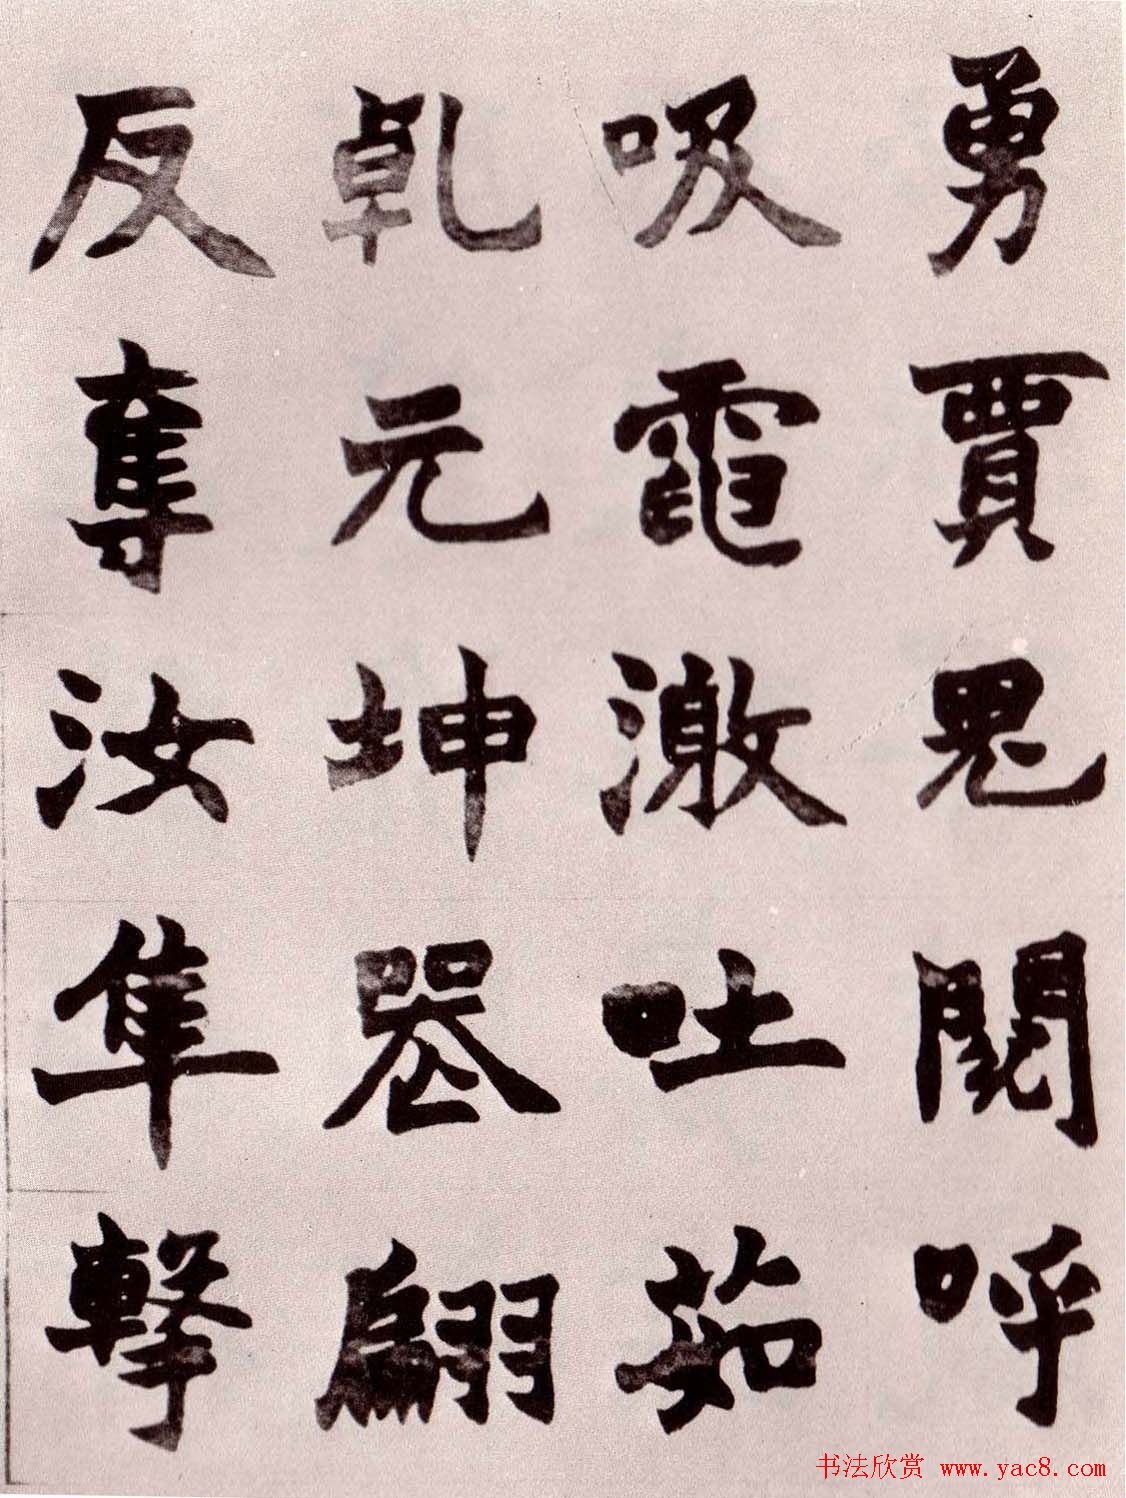 勇賈鬼呼
吸電激吐茹
乾元坤翩
反奪汝隼擊
书法欣赏 www.yac8.com